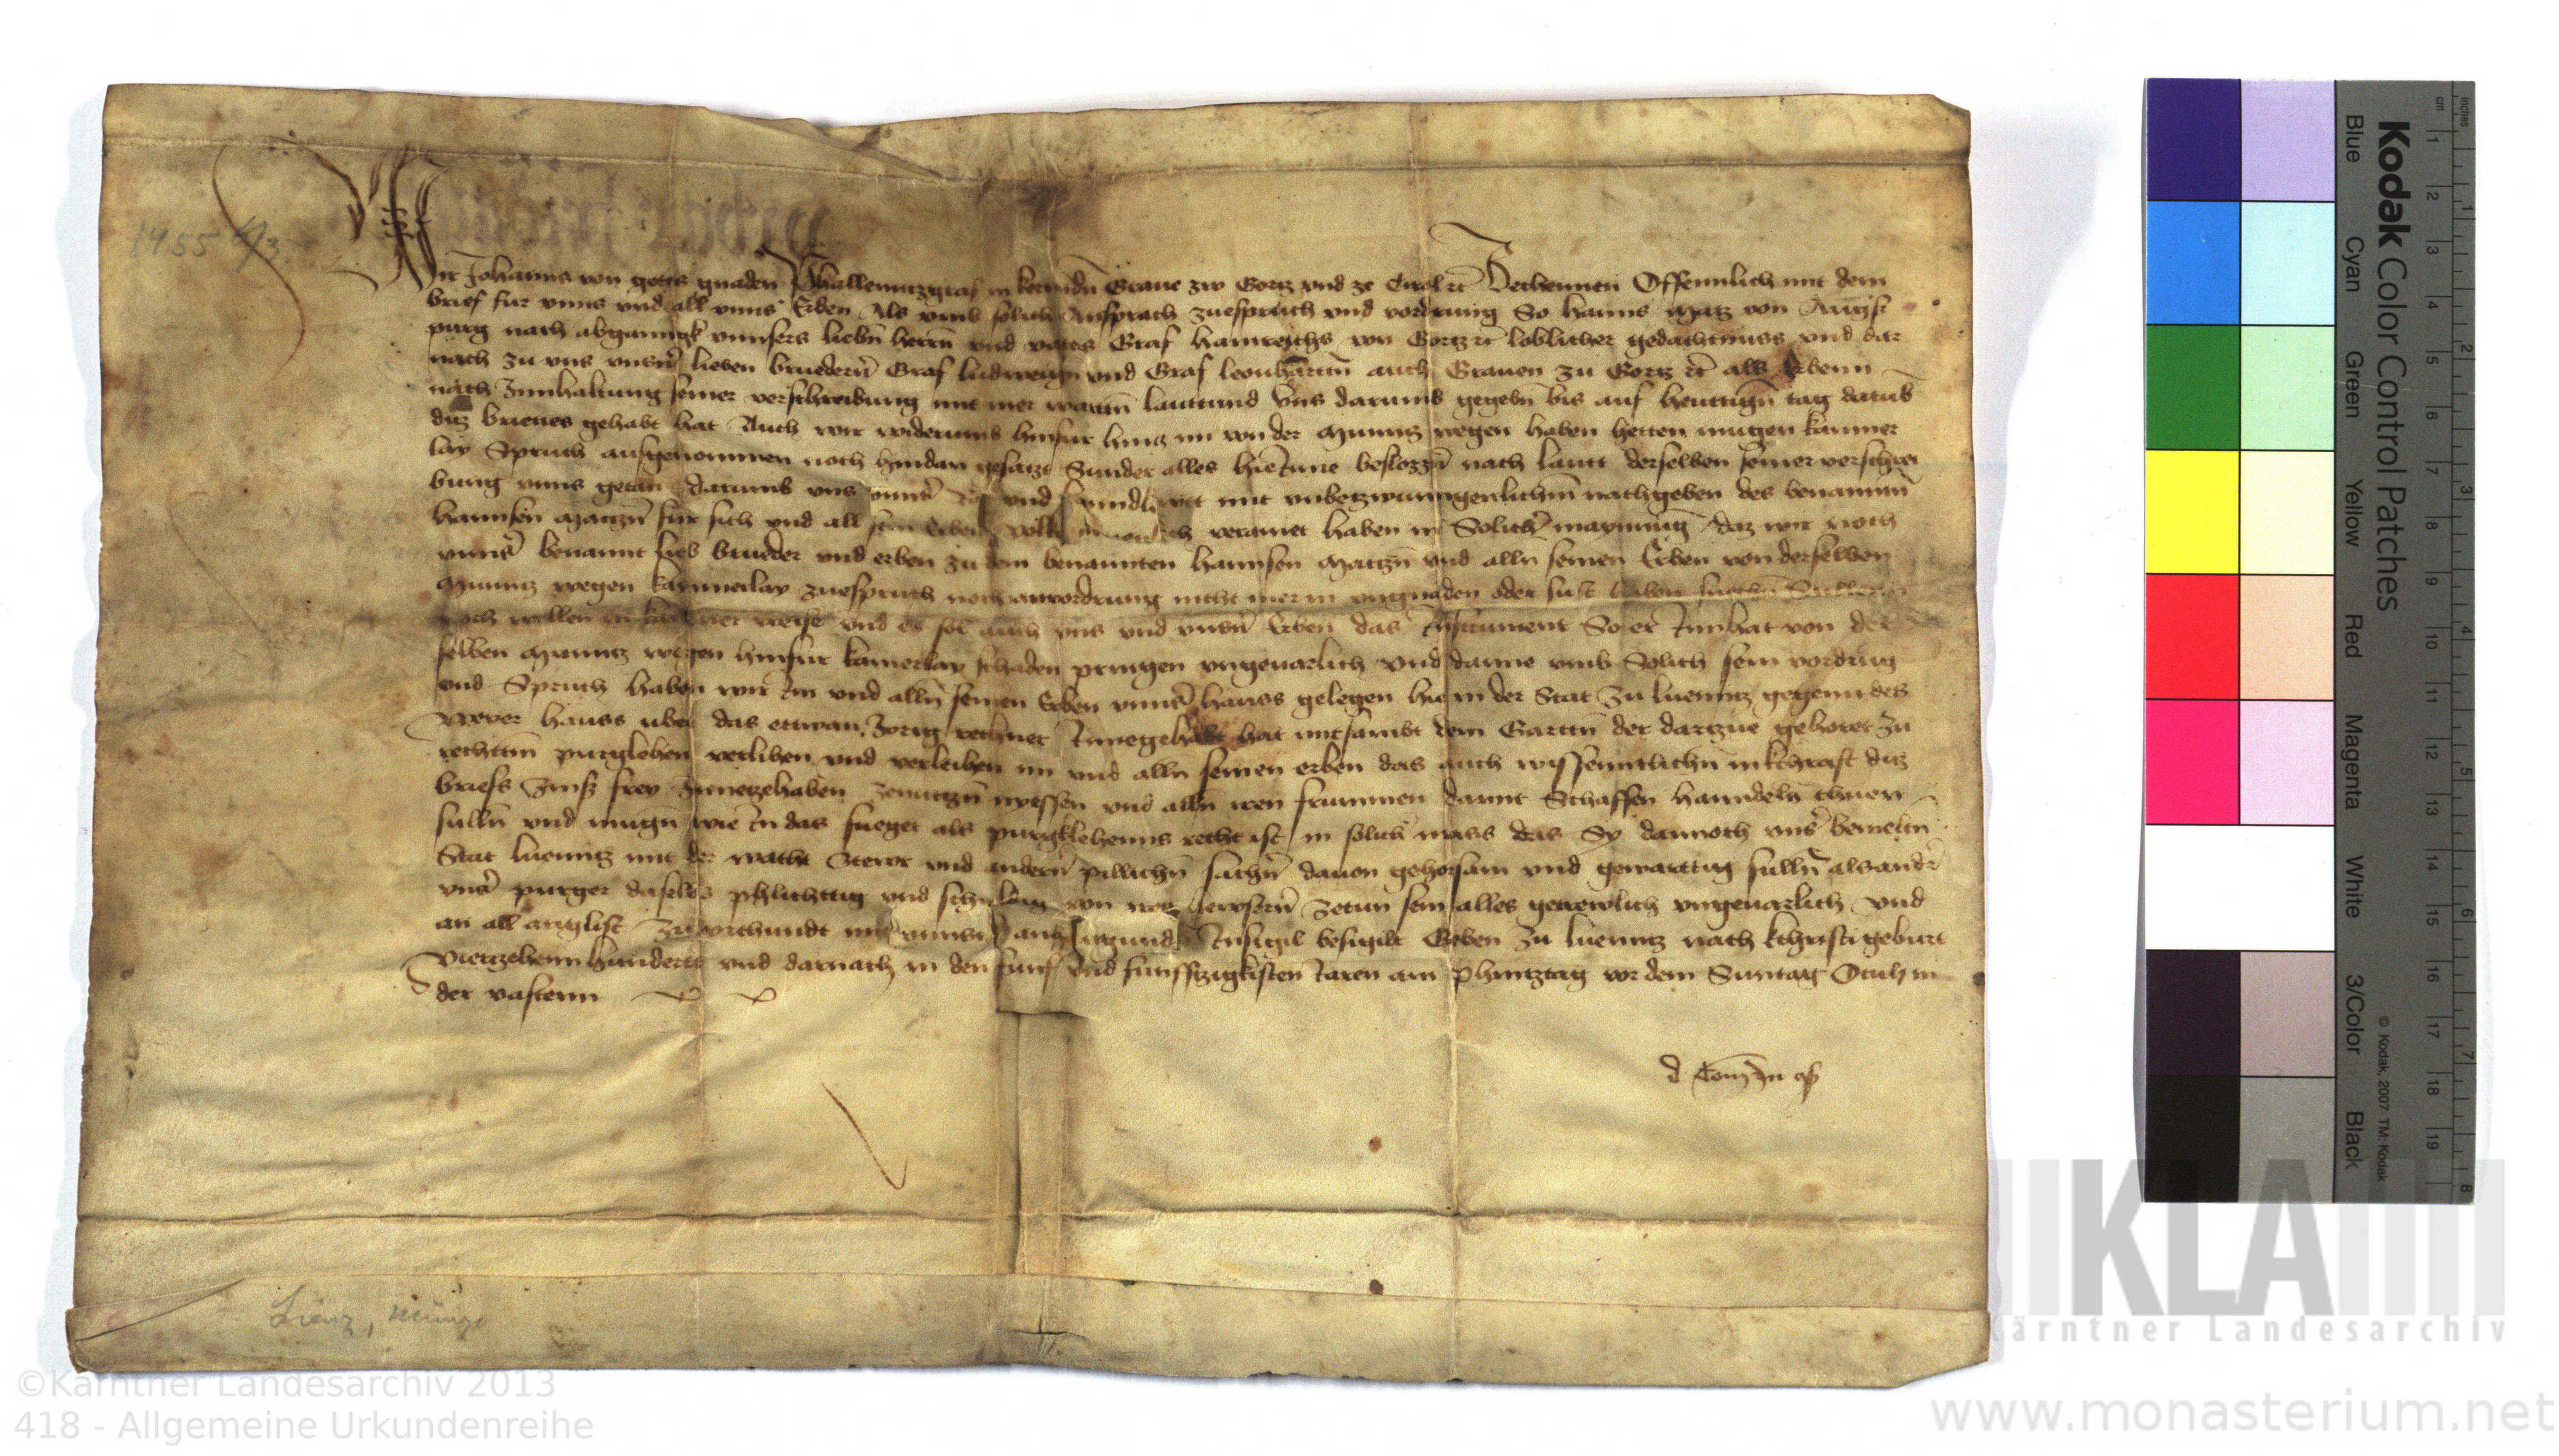 1455 6/3
Wir Johanns von gotes gnaden Phallenntzgraf in kerenndn Graue zw Gortz vnd ze Tirol rc Bechennen Offennlich mit dem
brief fur vnns vnd all vnns Erben Als vmb solich Ansprach zuespruch vnd vordrung So hanns Matz von Augst
purg nach abganngk vnnsers liebn herrn vnd vaters Graf hainreichs von Gortz rc loblicher gedachtnuss vnd dar
nach zu vns vnsern lieben bruedern Graf ludweigen vnd Graf leonhartn auch Grauen zu Gortz rc als Erbenn
nach Innhaltung seiner verschreibung mit mer wartn lauttund vns darumb gegebn bis auf heuttign tag datub
ditz brieues gehabt hat Auch wir widerumb hinfur hintz im von der Munntz wegen haben hetten mugen kainner
lay Spruch ausgenommen noch hindan gesatzt Sunder alles hierinne beslozzn nach lautt derselben seiner verschrei
bung vnns getan darumb vns vnnser vnd mit vnbetzwunngenlichm nachgeben des benanntn
hannsen Matzn fur sich vnd all sein Erben verainet haben in Solicher maynung daz wir noch
vnnser benannt lieb brueder vnd erben zu dem benannten hannsen Matzn vnd alln seinen Erben von derselben
Munntz wegen kainnerlay zuespruch noch anvordrung nicht mer in vngnaden oder sust haben suechn Sullen
noch wellen in kainner weise vnd es sol auch vns vnd vnsern Erben das Instrument So er Innhat von der
selben Munntz wegen hinfur kainerlay schaden pringen vngeuarlich vnd danne vmb Solich sein vordrug
vnd Spruch haben wir Im vnd alln seinen Erben vnnser hauss gelegen hie in der Stat zu luenntz gegenn des
hauss uber das ettwan Jorig Innegehabt hat mitsambt dem Gartn der dartzue gehoret zu
rechttm purglehen verlihen vnd verleihen im vnd alln seinen erben das auch wissenntlichn in kchraft ditz
briefs Zinss frey Innetzehaben zenutzn nyessen vnd alln iren frummen damit Schaffen hanndeln thuen
sulln vnd mugn wie In das fueget als purgklehenns recht ist in solicher mass das Sy dannoch vnser bemeltn
Stat luenntz mit der wacht Stewr vnd andern pillichn sachn dauon gehorsam vnd gewarttig sulln als ander
vnser purger daselbs phlichttig vnd schuldig von iren hewsern zetun sein alles getrewlich vngeuarlich vnd
an all arglist Zu vrchundt mit vnnserm Insigil besigilt Geben zu luenntz nach kchristi geburt
viertzehenn hunndert vnd darnach in den funf vnd funffzigkisten Iaren am Phintztag vor dem Suntag Oculi in
der vastenn
Lienz, Münze
Kodak Color Control Patches
Inches
cm
Blue
Cyan
Green
Yellow
Red
Magenta
White
3/Color
Black
© Kodak, 2007 TM: Kodak
1 2 3 4 5 6 7 8 9 10 11 12 13 14 15 16 17 18 19
1 2 3 4 5 6 7 8
KLA
Kärntner Landesarchiv
©Kärntner Landesarchiv 2013
418 - Allgemeine Urkundenreihe
www.monasterium.net